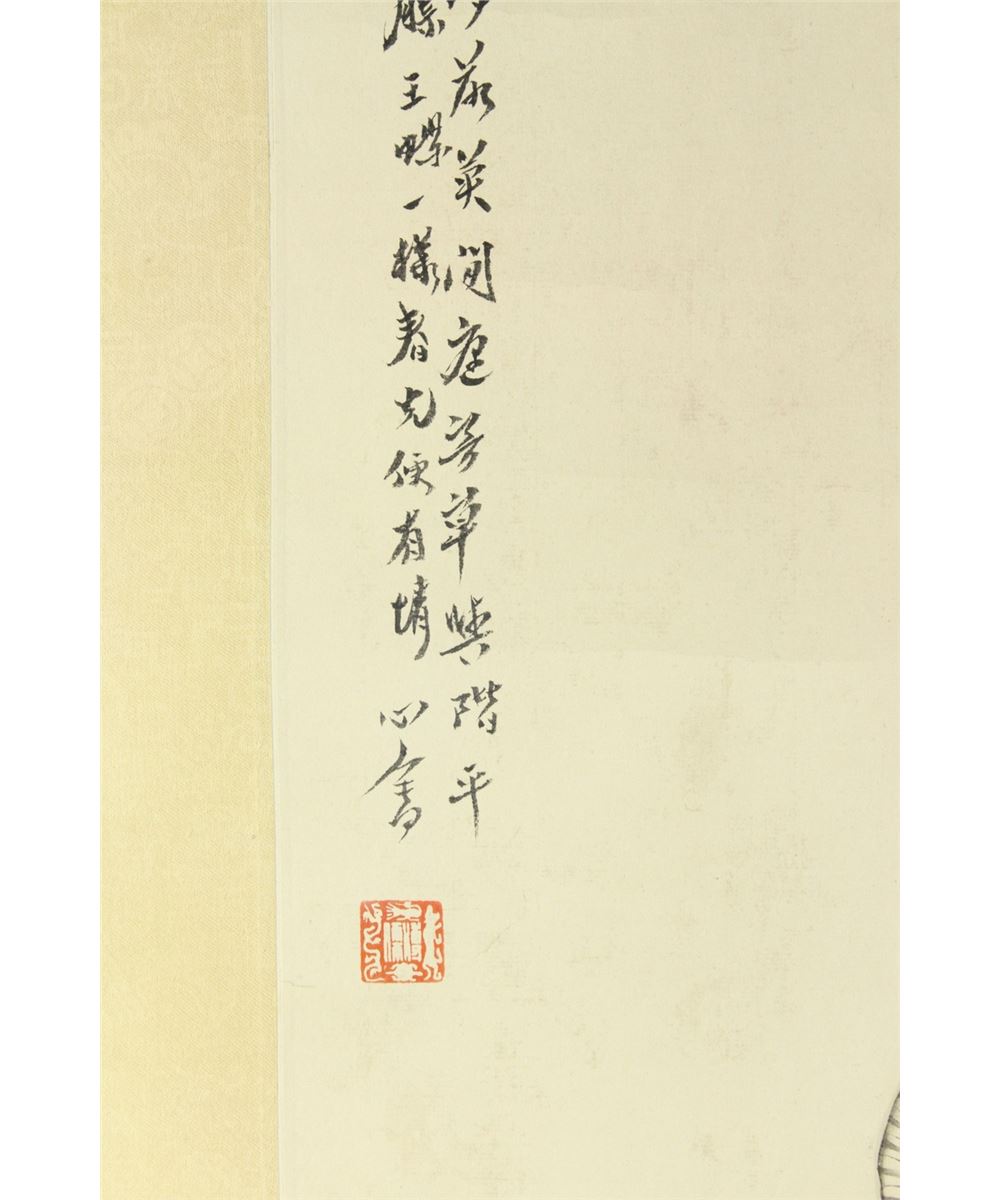 英閒庭芳草與階平
滕王蝶一樣春光便有情 心畬